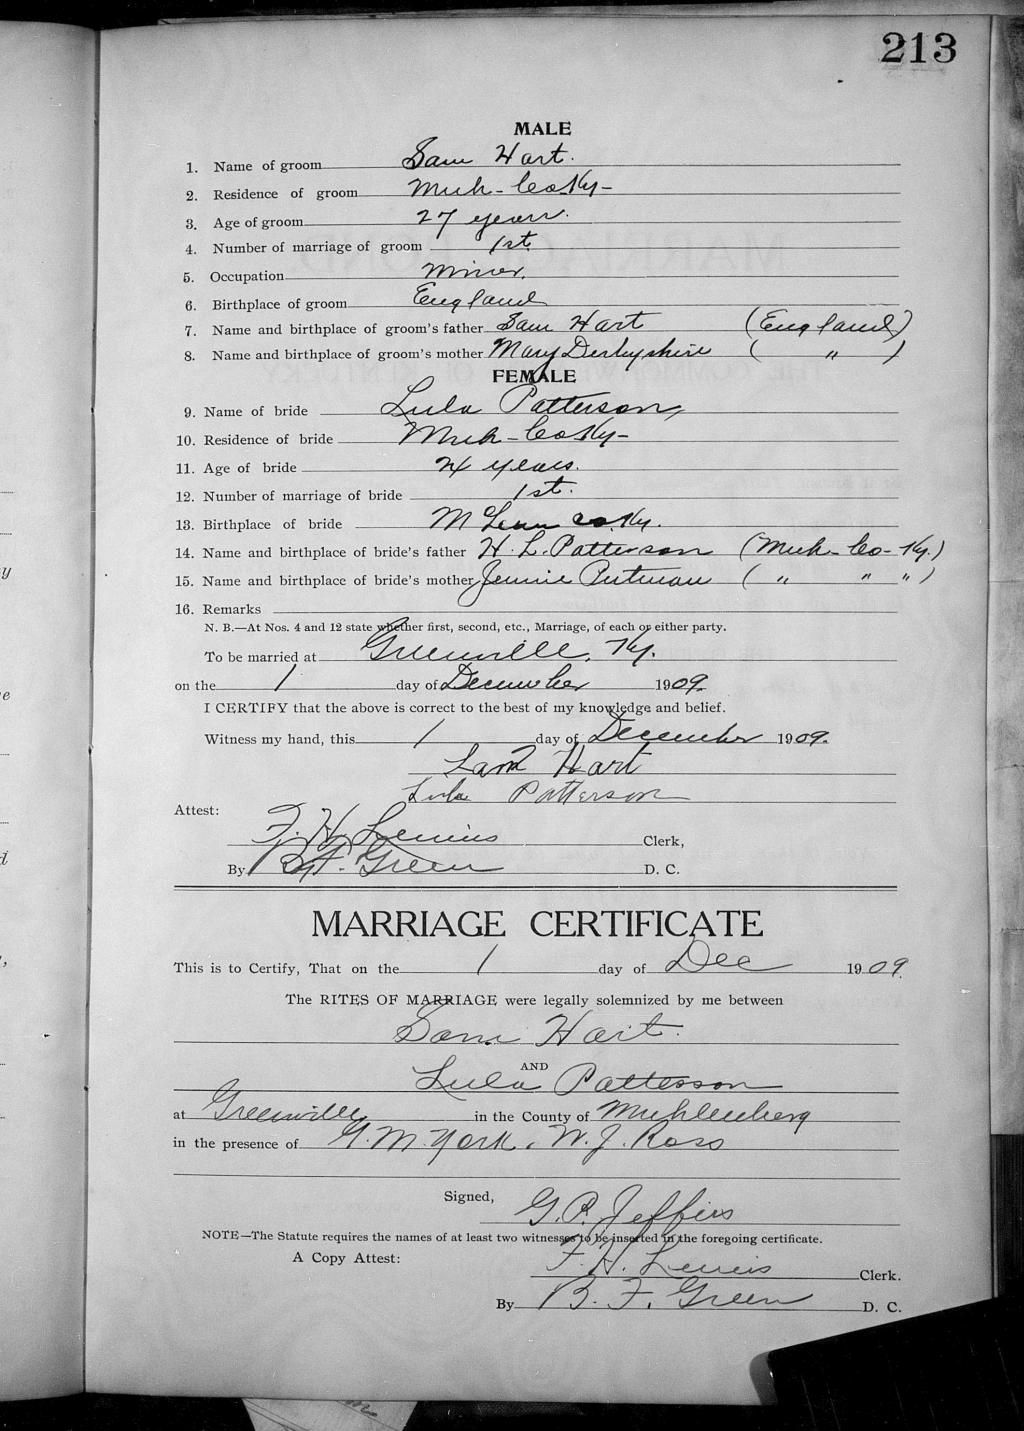 213
MALE
1. Name of groom Sam Hart.
2. Residence of groom Muh- Co-Ky-
3. Age of groom 27 years.
4. Number of marriage of groom 1st.
5. Occupation Miner.
6. Birthplace of groom England
7. Name and birthplace of groom's father Sam Hart (England)
8. Name and birthplace of groom's mother Mary Derbyshire ( " )
FEMALE
9. Name of bride Lula Patterson,
10. Residence of bride Muh- Co-Ky-
11. Age of bride 24 years.
12. Number of marriage of bride 1st.
13. Birthplace of bride McLean co. Ky.
14. Name and birthplace of bride's father H. L. Patterson (Muh- Co- Ky.)
15. Name and birthplace of bride's mother Jennie Putman ( " " " )
16. Remarks
N. B.—At Nos. 4 and 12 state whether first, second, etc., Marriage, of each or either party.
To be married at Greenville, Ky.
on the 1 day of December 1909.
I CERTIFY that the above is correct to the best of my knowledge and belief.
Witness my hand, this 1 day of December 1909.
Sam Hart
Lula Patterson
Attest:
F. H. Clerk,
By B. F. Green D. C.
MARRIAGE CERTIFICATE
This is to Certify, That on the 1 day of Dec 1909.
The RITES OF MARRIAGE were legally solemnized by me between
Sam Hart.
AND
Lula Patterson
at Greenville in the County of Muhlenberg
in the presence of G. M. York, W. J. Ross
Signed,
G. P. Jeffins
NOTE—The Statute requires the names of at least two witnesses to be inserted in the foregoing certificate.
A Copy Attest:
F. H. Clerk.
By B. F. Green D. C.